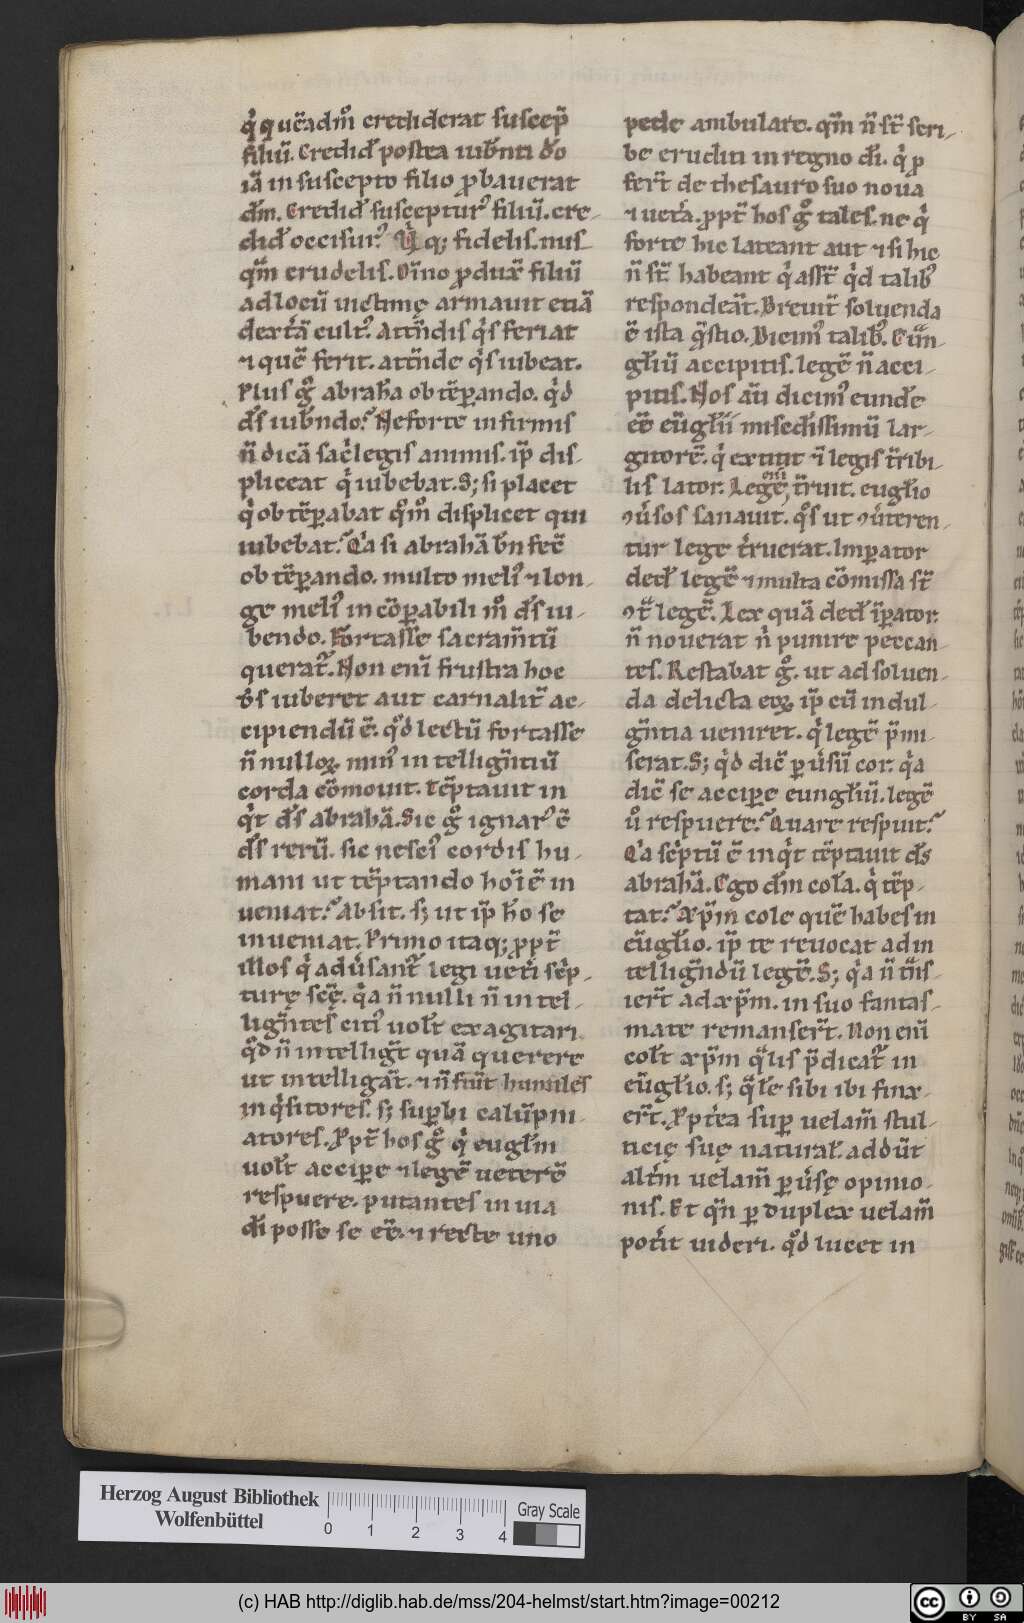 q̇ quēadm̊ crediderat suscep̄
filiū. Credid̄ postea iub̄nti do
iā in suscepto filio ꝓbauerat
dm̄. Credid̄ suscepturꝰ filiū. cre-
did̄ occisurꝰ. Vḃ q; fidelis. nus-
qm̄ crudelis. Oīno ꝓdux̄ filiū
ad locū uictimę armauit etiā
dext̄ā cultꝰ. Attn̄dis q̇s feriat
⁊ quē ferit. attn̄de q̇s iubeat.
Pius g̊ abrah̄a obtēꝑando. q̇d
ds̄ iub̄ndo? Ne forte infirmis
n̄ dicā sac̓legis animis. ip̄ dis-
pliceat q̇ iubebat. S; si placet
q̇ obtēꝑabat q̊m̊ displicet qui
iubebat? Q̓a si abrahā bn̄ fec̄
obtēꝑando. multo meliꝰ ⁊ lon-
ge meliꝰ incōꝑabili m̊ ds̄ iu-
bendo. Fortasse sacram̄tū
querat̃. Non enī frustra hoc
ds̄ iuberet aut carnalit̄ ac-
cipiendū ē. q̊d lectū fortasse
n̄ nulloꝝ minꝰ intellign̄tiū
corda cōmouit. Tēptauit in
q̇t ds̄ abrahā. Sic g̊ ignarꝰ ē
ds̄ rerū. sic nesciꝰ cordis hu-
mani ut tēptando hoīē in
ueniat? Absit. s; ut ip̄ h̄o se
inueniat. Primo itaq; ꝓpt̄
illos q̇ adu̓sant̃ legi uet̓i sc̓p-
turę scę̄. q̇a n̄nulli n̄ intel-
lign̄tes citiꝰ uolt̄ exagitari
q̊d n̄ intelligt̄ quā querere
ut intelligāt. ⁊ n̄ fiūt humiles
inq̇sitores. s; suꝑbi calūpni-
atores. Ꝓpt̄ hos g̊ q̇ euglm̄
uolt̄ accipe ⁊ legē ueterē
respuere. putantes in uia
di̅ posse se ee̅. ⁊ recte uno
pede ambulare. qm̄ n̄ st̄ scri-
be eruditi in regno di̅. q̇ ꝓ
fert̄ de thesauro suo noua
⁊ uet̓a. ꝓpt̄ hos g̊ tales. ne q̇
forte hic lateant aut ⁊ si hic
n̄ st̄ habeant q̇ asst̄ q̇d talibꝰ
respondeāt. Breuit̄ soluenda
ē ista q̄stio. Dicimꝰ talibꝰ. Eūn-
gl̄iū accipitis. legē n̄ acci-
pitis. Nos aū dicimꝰ eunde
ee̅ eūgl̄ii misc̄dissimū lar-
gitorē. q̇ extitit ⁊ legis t̄ribi-
lis lator. Legē enī t̄ruit. eugl̄io
ꝯu̓sos sanauit. q̊s ut ꝯu̓teren-
tur lege t̓ruerat. Imꝑator
ded̄ legē ⁊ multa cōmissa st̄
ꝯt̄ legē. Lex quā ded̄ īꝑator.
n̄ nouerat n̓ punire peccan-
tes. Restabat g̊. ut ad soluen-
da delicta eoꝝ ip̄ cū indul-
gn̄tia ueniret. q̇ legē p̄mi-
serat. S; q̇d dic̄ ꝑu̓sū cor. q̇a
dic̄ se accipe eungl̄iū. legē
ů respuere? Quare respuit?
Q̓a sc̓ptū ē inq̇t tēptauit ds̄
abrahā. Ego dm̄ cola. q̇ tēp-
tat? Xp̄m cole quē habes in
eūgl̄io. ip̄ te reuocat ad in
tellign̄dū legē. S; q̇a n̄ tn̄s-
iert̄ ad xp̄m. in suo fantas-
mate remansert̄. Non enī
colt̄ xp̄m q̄lis p̄dicat̃ in
eūgl̄io. s; q̄le̅ sibi ibi finx-
ert̄. Ꝓpt̓ea suꝑ uelam̄ stul-
ticię suę natural̄ addūt
alt̓m uelam̄ ꝑu̓sę opinio-
nis. Et qn̄ ꝑ duplex uelam̄
pot̓it uideri. q̊d lucet in
Herzog August Bibliothek
Wolfenbüttel
0 1 2 3 4
Gray Scale
(c) HAB http://diglib.hab.de/mss/204-helmst/start.htm?image=00212
cc BY SA